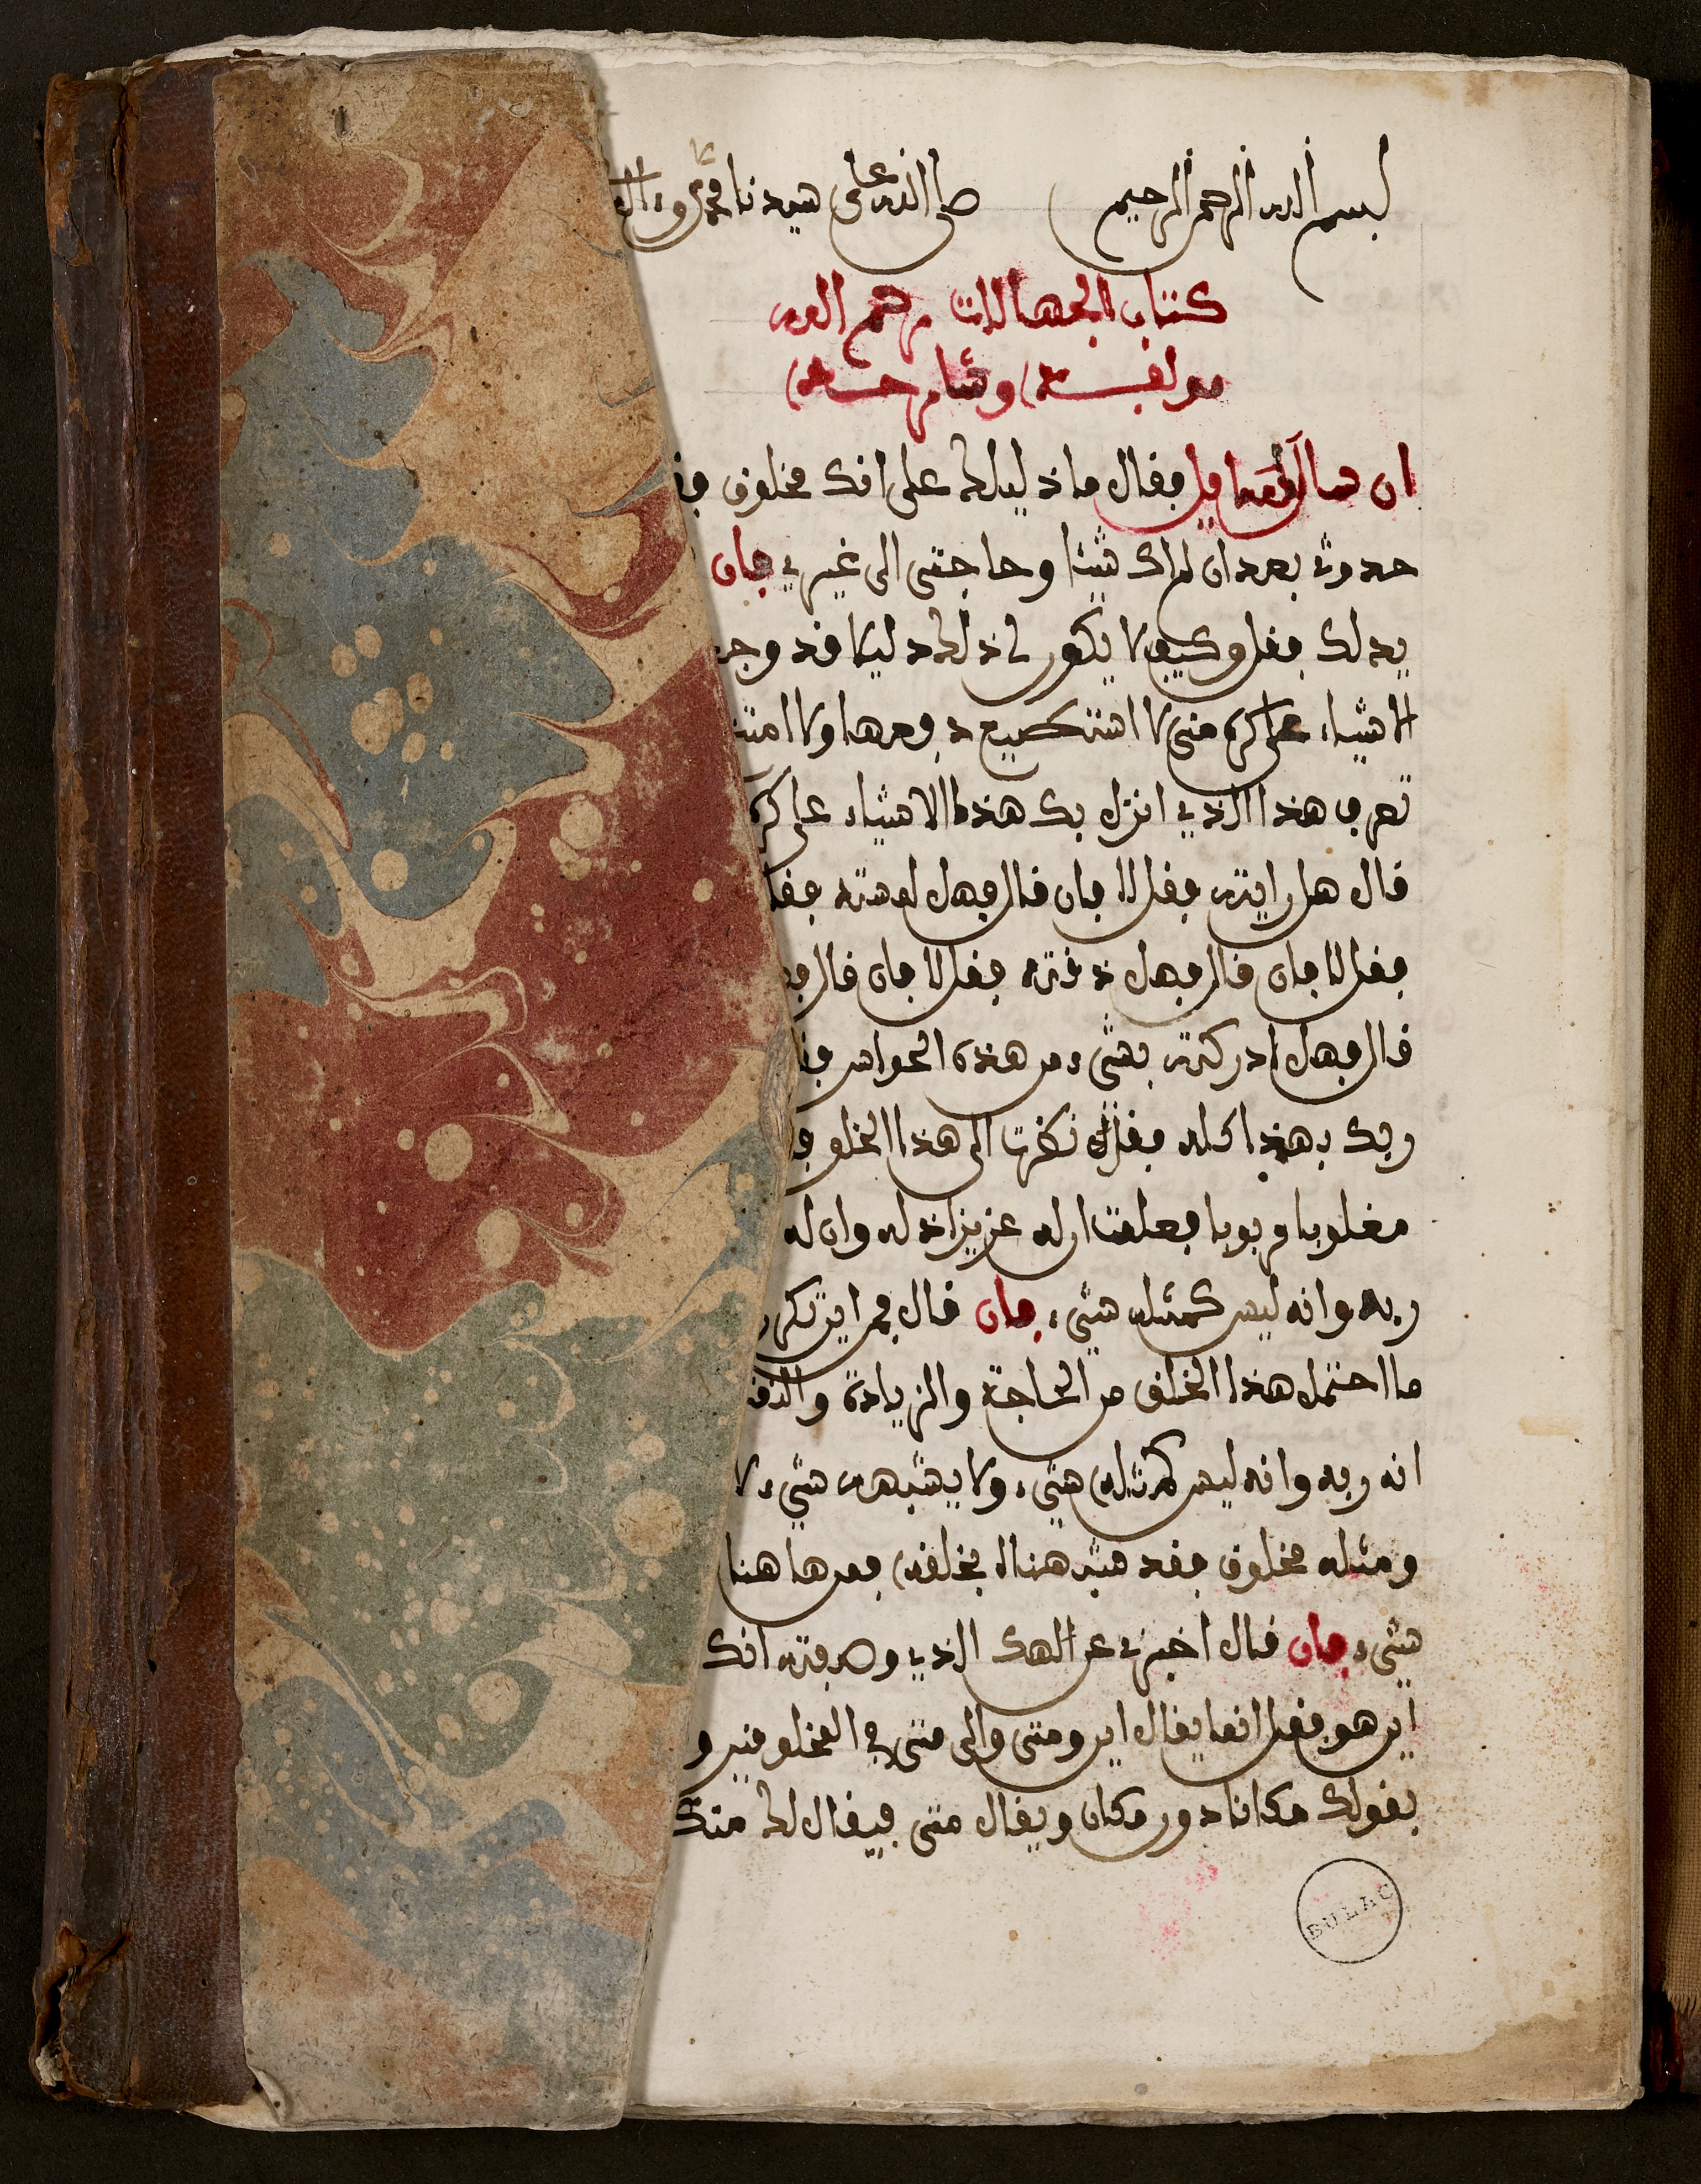 بسم الله الرحمن الرحيم صلى الله على سيدنا محمد وءاله
كتاب الجهالات رحم الله
مولفه وشارحه
ان سالك سايل فقال ما دليلك على انك مخلوق
حدوثي بعد ان لم اك شيئا وحاجتي الى غيري فان
يدلك فقل وكيف لا يكون لي ذلك دليلا وقد
الاشياء على كره مني لا استطيع دفعها ولا
تعرف هذا الذي انزل بك هذه الاشياء على كره
قال هل رايته فقل لا فان قال فهل لمسته
فقل لا فان قال فهل ذقته فقل لا فان قال
قال فهل ادركته بشيء من هذه الحواس
ربك بهذا كله فقل نظرت الى هذا الخلق
مغلوبا مربوبا فعلمت ان له عزيزا ذلله وان له
ربه وانه ليس كمثله شيء فان قال فمن اين
ما احتمل هذا الخلق من الحاجة والزيادة
انه ربه وانه ليس كمثله شيء ولا يشبهه شيء
ومثله مخلوق فقد شبهنا بخلقه فمن هاهنا
شيء فان قال اخبرني عن الهك الذي وصفته انك
اين هو فقل انما يقال اين ومتى والى متى في المخلوقين و
بقولك مكانا دون مكان ويقال متى فيقال لك
BULAC